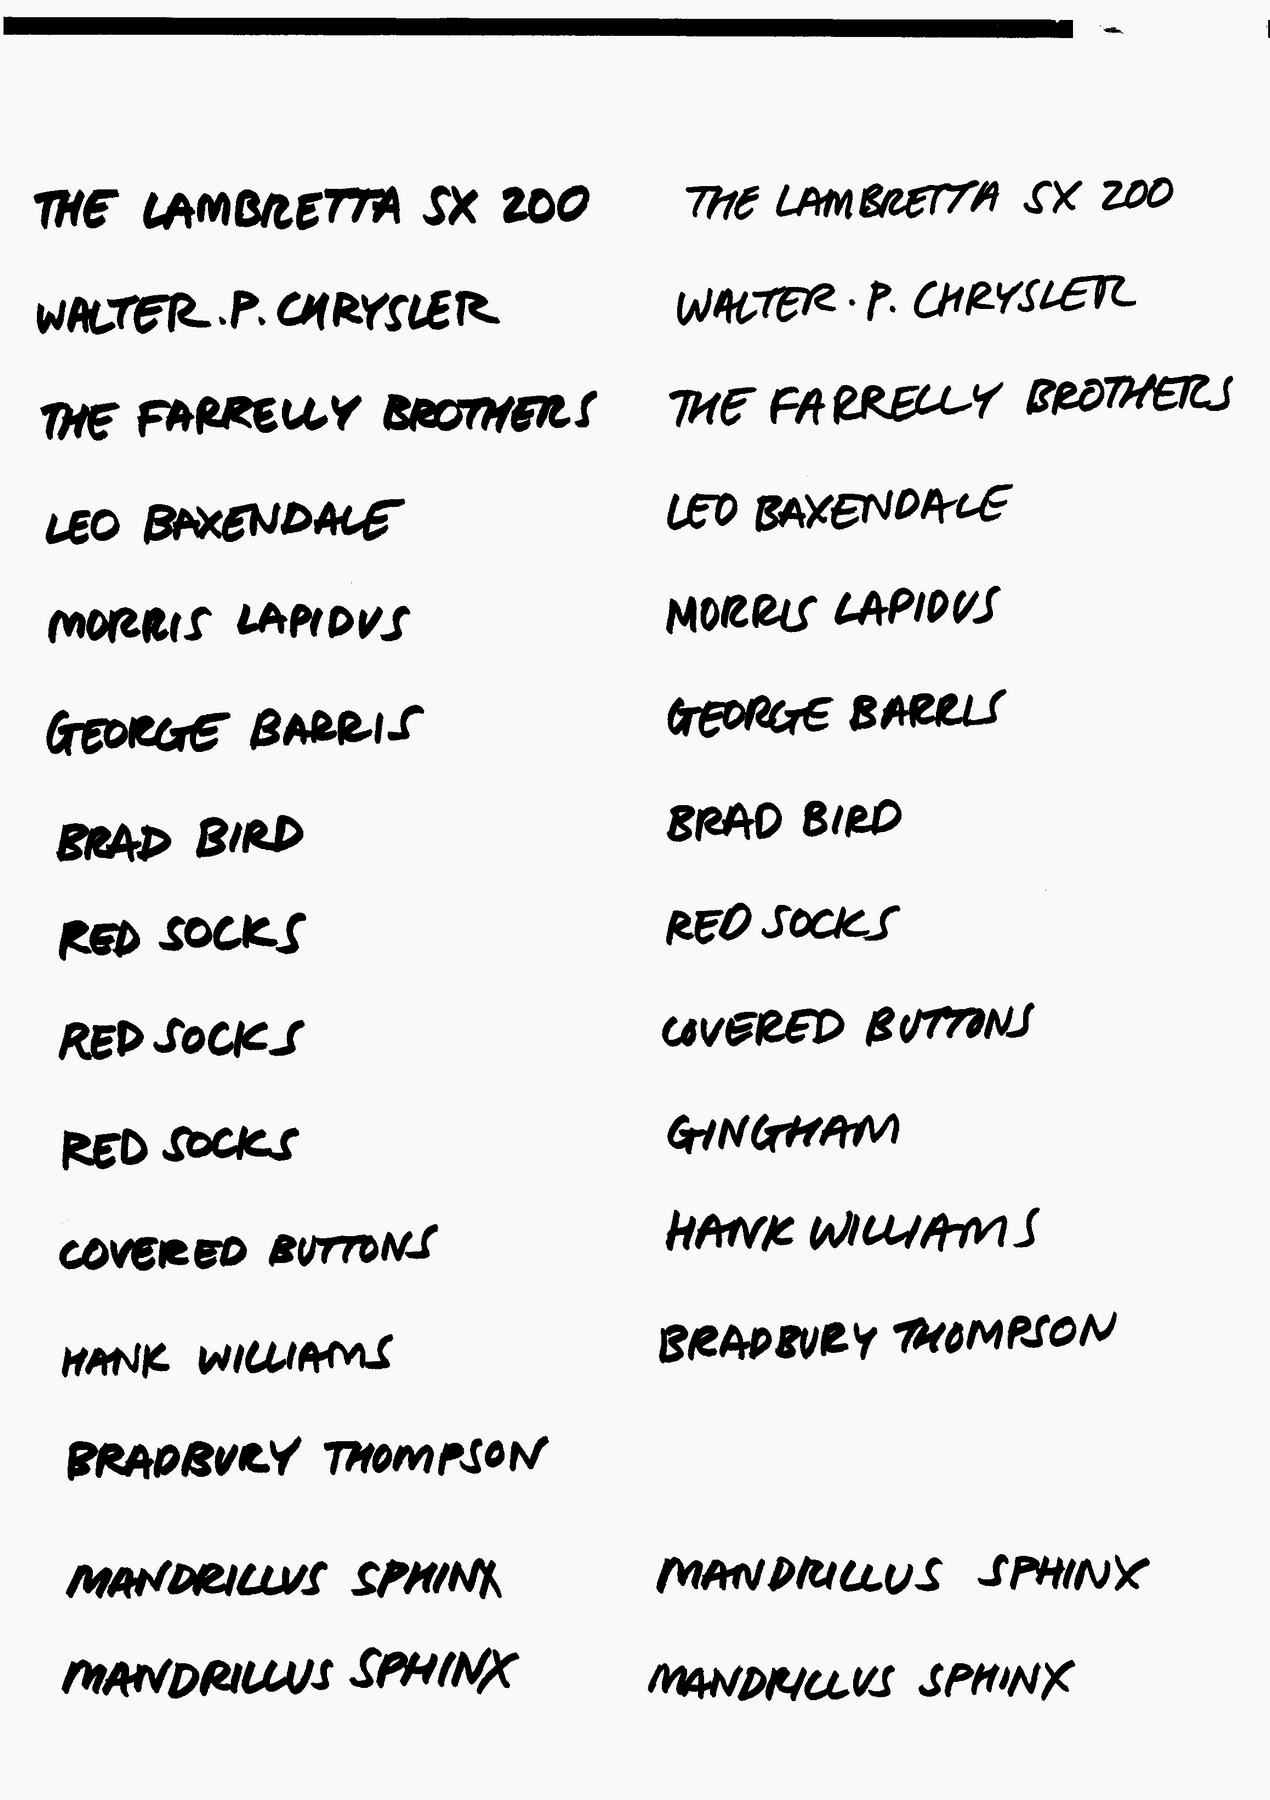 THE LAMBRETTA SX 200
WALTER.P.CHRYSLER
THE FARRELLY BROTHERS
LEO BAXENDALE
MORRIS LAPIDUS
GEORGE BARRIS
BRAD BIRD
RED SOCKS
RED SOCKS
RED SOCKS
COVERED BUTTONS
HANK WILLIAMS
BRADBURY THOMPSON
MANDRILLUS SPHINX
MANDRILLUS SPHINX
THE LAMBRETTA SX 200
WALTER.P.CHRYSLER
THE FARRELLY BROTHERS
LEO BAXENDALE
MORRIS LAPIDUS
GEORGE BARRIS
BRAD BIRD
RED SOCKS
COVERED BUTTONS
GINGHAM
HANK WILLIAMS
BRADBURY THOMPSON
MANDRILLUS SPHINX
MANDRILLUS SPHINX